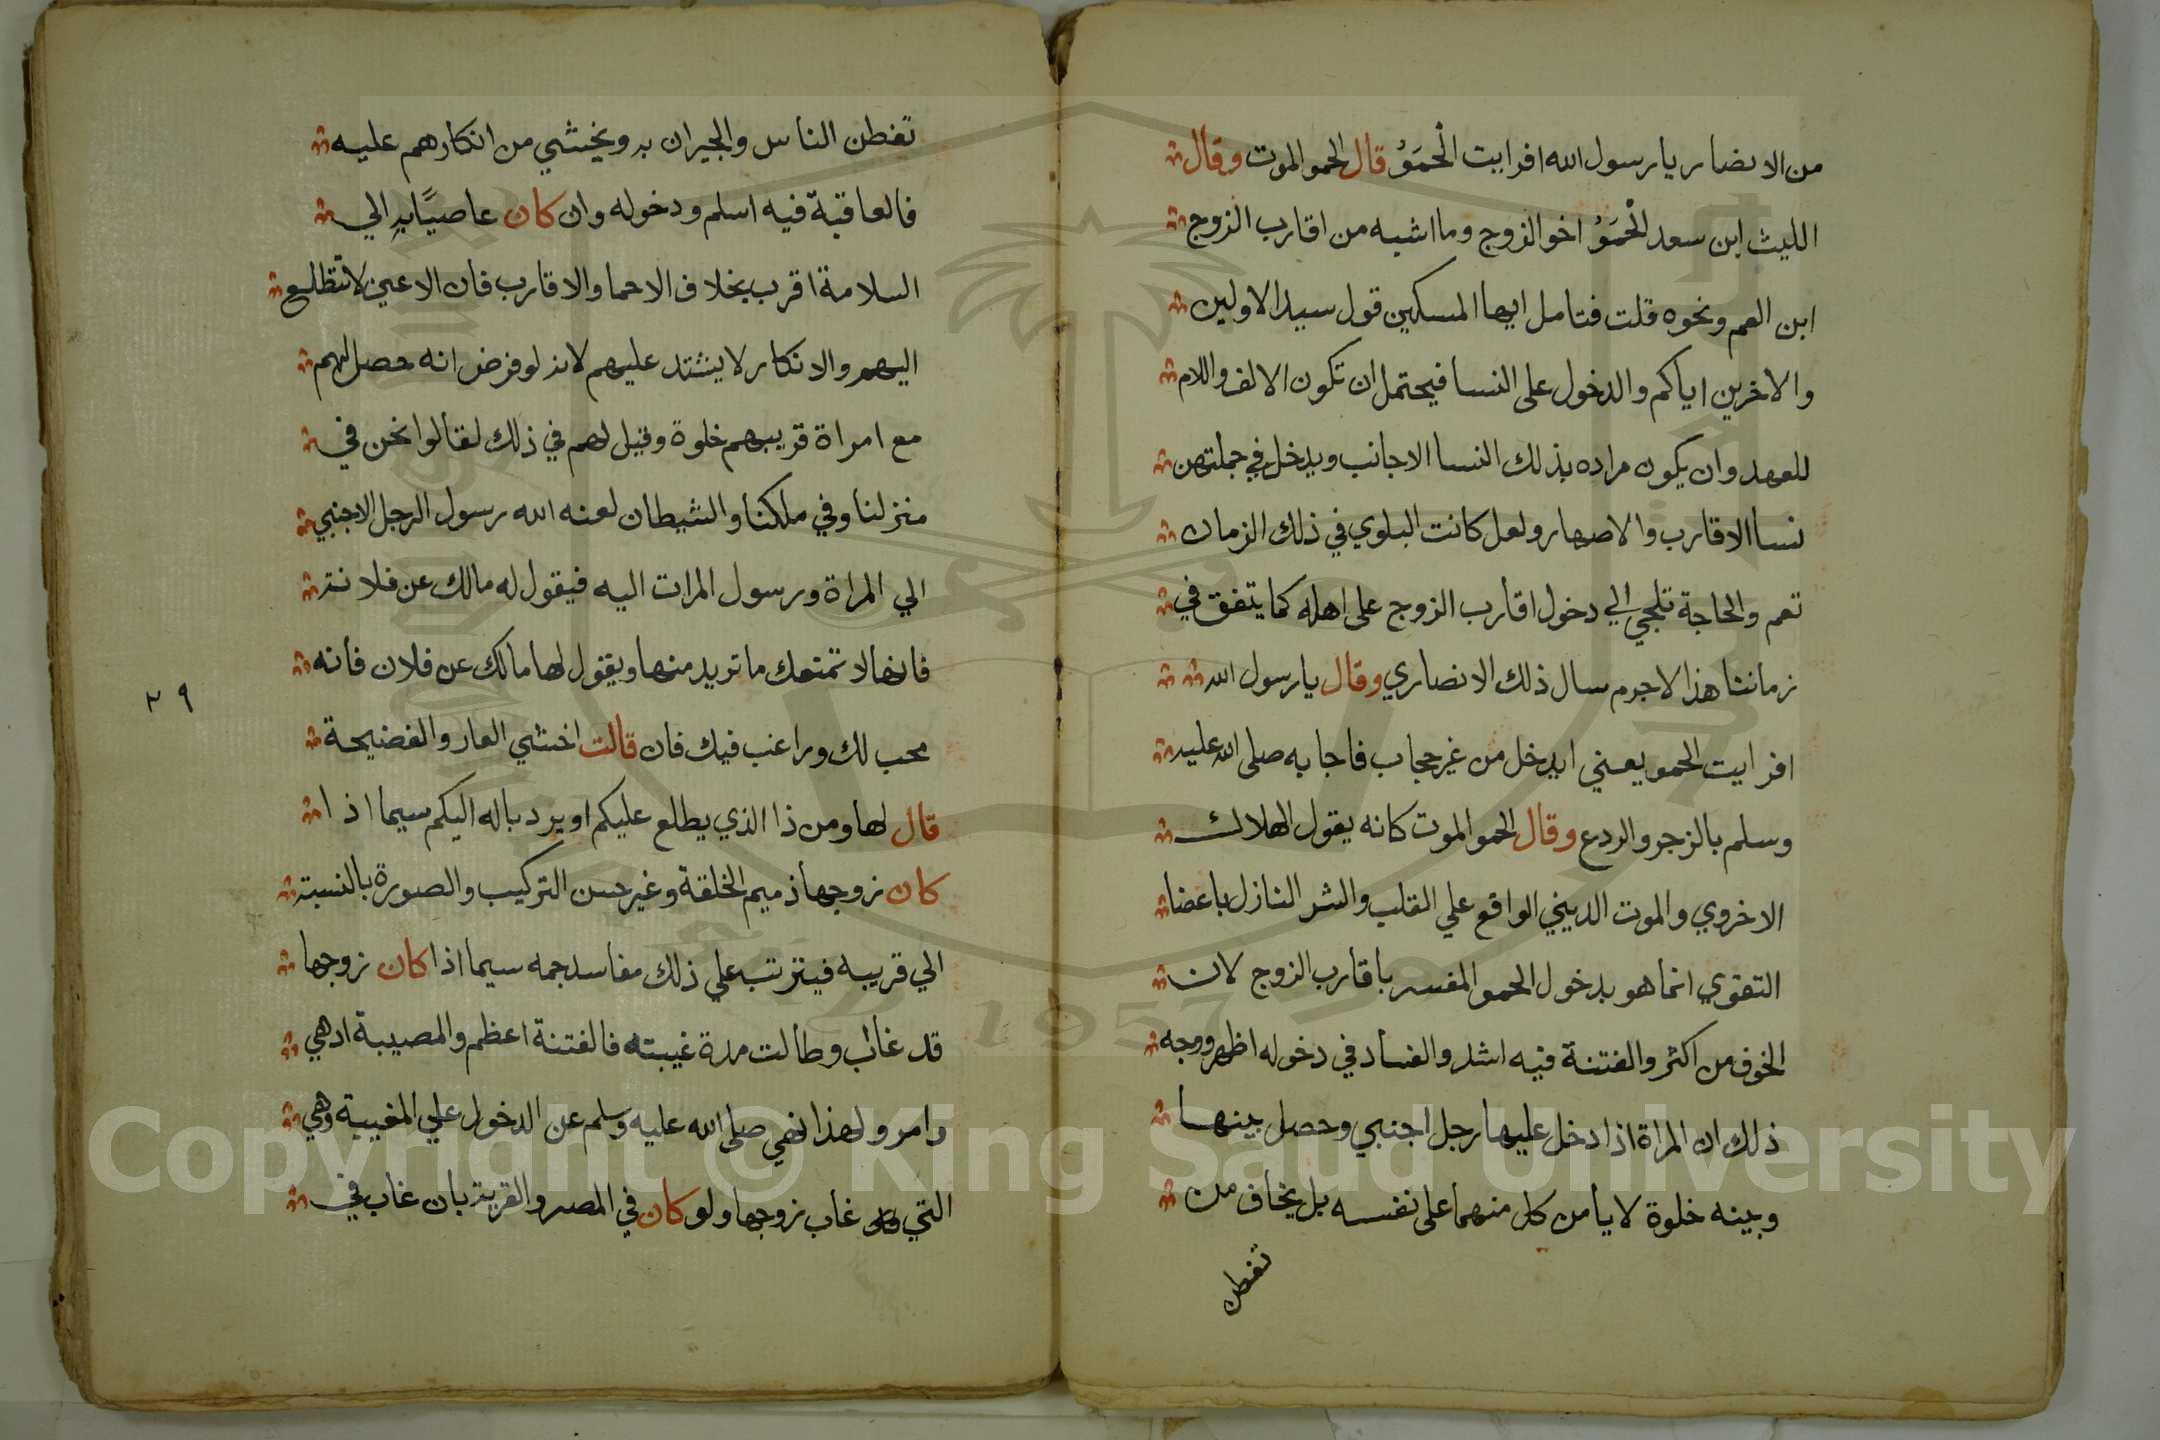 من الانصار يارسول الله افرايت الْحَمَوُ قال الحمو الموت وقال
الليث ابن سعد الْحَمَوُ اخو الزوج وما اشبه من اقارب الزوج
ابن العم ونحوه قلت فتامل ايها المسكين قول سيد الاولين
والاخرين اياكم والدخول على النسا فيحتمل ان تكون الالف واللام
للعهد وان يكون مراده بذلك النسا الاجانب ويدخل في جملتهن
نسا الاقارب والاصهار ولعل كانت البلوي في ذلك الزمان
تعم والحاجة تلجي الي دخول اقارب الزوج على اهله كما يتفق في
زماننا هذا لاجرم سال ذلك الانصاري وقال يارسول الله
افرايت الحمو يعني ايدخل من غير حجاب فاجابه صلى الله عليه
وسلم بالزجر والردع وقال الحمو الموت كانه يقول الهلاك
الاخروي والموت الديني الواقع علي القلب والشر النازل باعضا
التقوي انما هو بدخول الحمو المفسر باقارب الزوج لان
الخوف من اكثر والفتنة فيه اشد والفساد في دخوله اظهر ووجه
ذلك ان المراة اذا دخل عليها رجل اجنبي وحصل بينهما
وبينه خلوة لا يأمن كل منهما على نفسه بل يخاف من
تفطن
تفطن الناس والجيران به ويخشي من انكارهم عليه
فالعاقبة فيه اسلم ودخوله وان كان عاصيًا به الي
السلامة اقرب بخلاف الاحما والاقارب فان الاعين لا تتطلع
اليهم والانكار لا يشتد عليهم لانه لو فرض انه حصل لهم
مع امراة قريبهم خلوة وقيل لهم في ذلك لقالوا نحن في
منزلنا وفي ملكنا والشيطان لعنه الله رسول الرجل الاجنبي
الي المراة ورسول المرات اليه فيقول له مالك عن فلانة
فانها لا تمنعك ما تريد منها ويقول لها مالك عن فلان فأنه
محب لك وراغب فيك فان قالت اخشي العار والفضيحة
٣٩
قال لها ومن ذا الذي يطلع عليكم او يرد باله اليكم سيما اذا
كان زوجها ذميم الخلقة وغير حسن التركيب والصورة بالنسبة
الي قريبه فيترتب علي ذلك مفاسد جمه سيما اذا كان زوجها
قد غاب وطالت مدة غيبته فالفتنة اعظم والمصيبة ادهي
وامر ولهذا نهي صلى الله عليه وسلم عن الدخول علي المغيبة وهي
التي غاب زوجها ولو كان في المصر والقرية بان غاب في
Copyright © King Saud University
1957